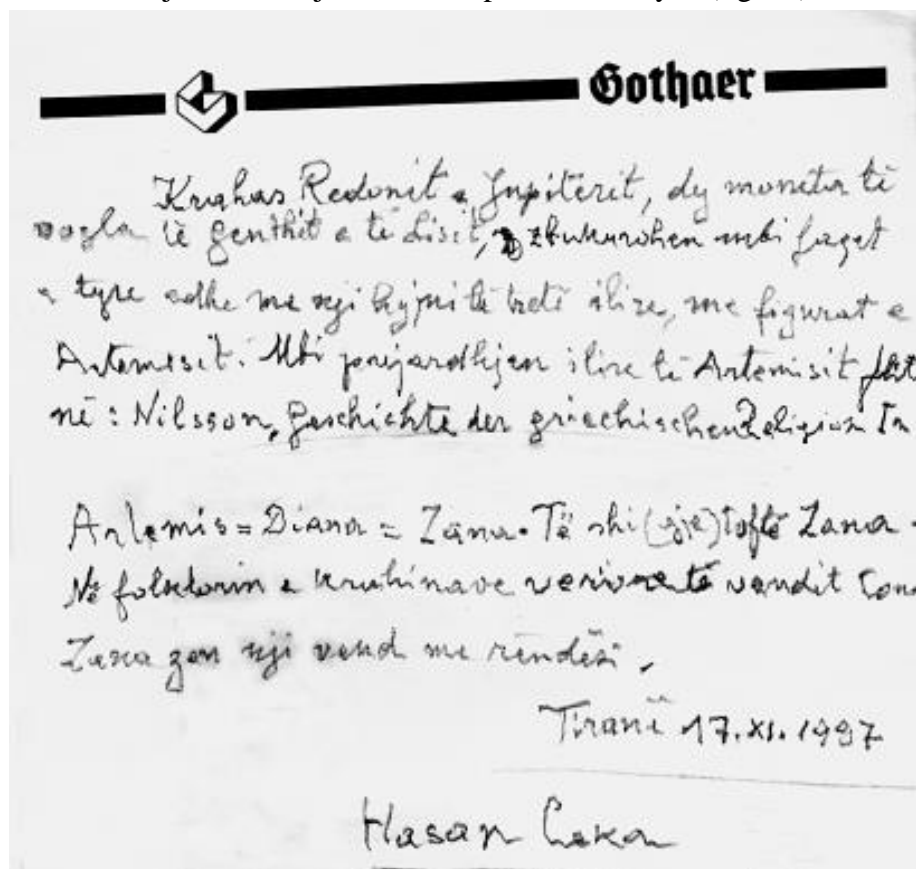 Gothaer
Krahas Redonit e Jupiterit, dy moneta të
vogla të Genthit e të Lisit, zbukurohen mbi faqet
e tyre edhe me nji hyjni të tretë ilire, me figurat e
Artemisit. Mbi prejardhjen ilire të Artemisit
në: Nilsson, Geschichte der griechischen Religion
Artemis = Diana = Zana. Të shi(gje)toftë Zana.
Në folklorin e krahinave veriore të vendit
Zana zen nji vend me rëndësi.
Tiranë 17.XI.1997
Hasan Ceka